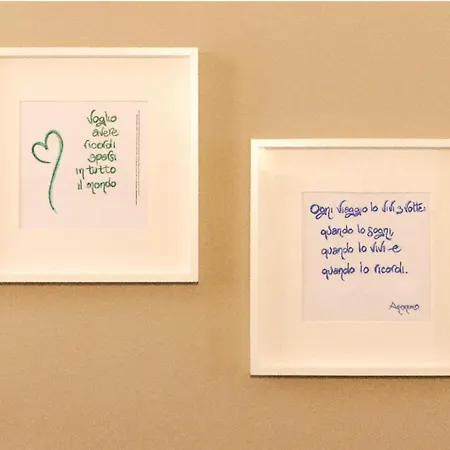 Voglio
avere
ricordi
sparsi
in tutto
il mondo
Ogni viaggio lo vivi 3 volte:
quando lo sogni,
quando lo vivi e
quando lo ricordi.
Anonimo